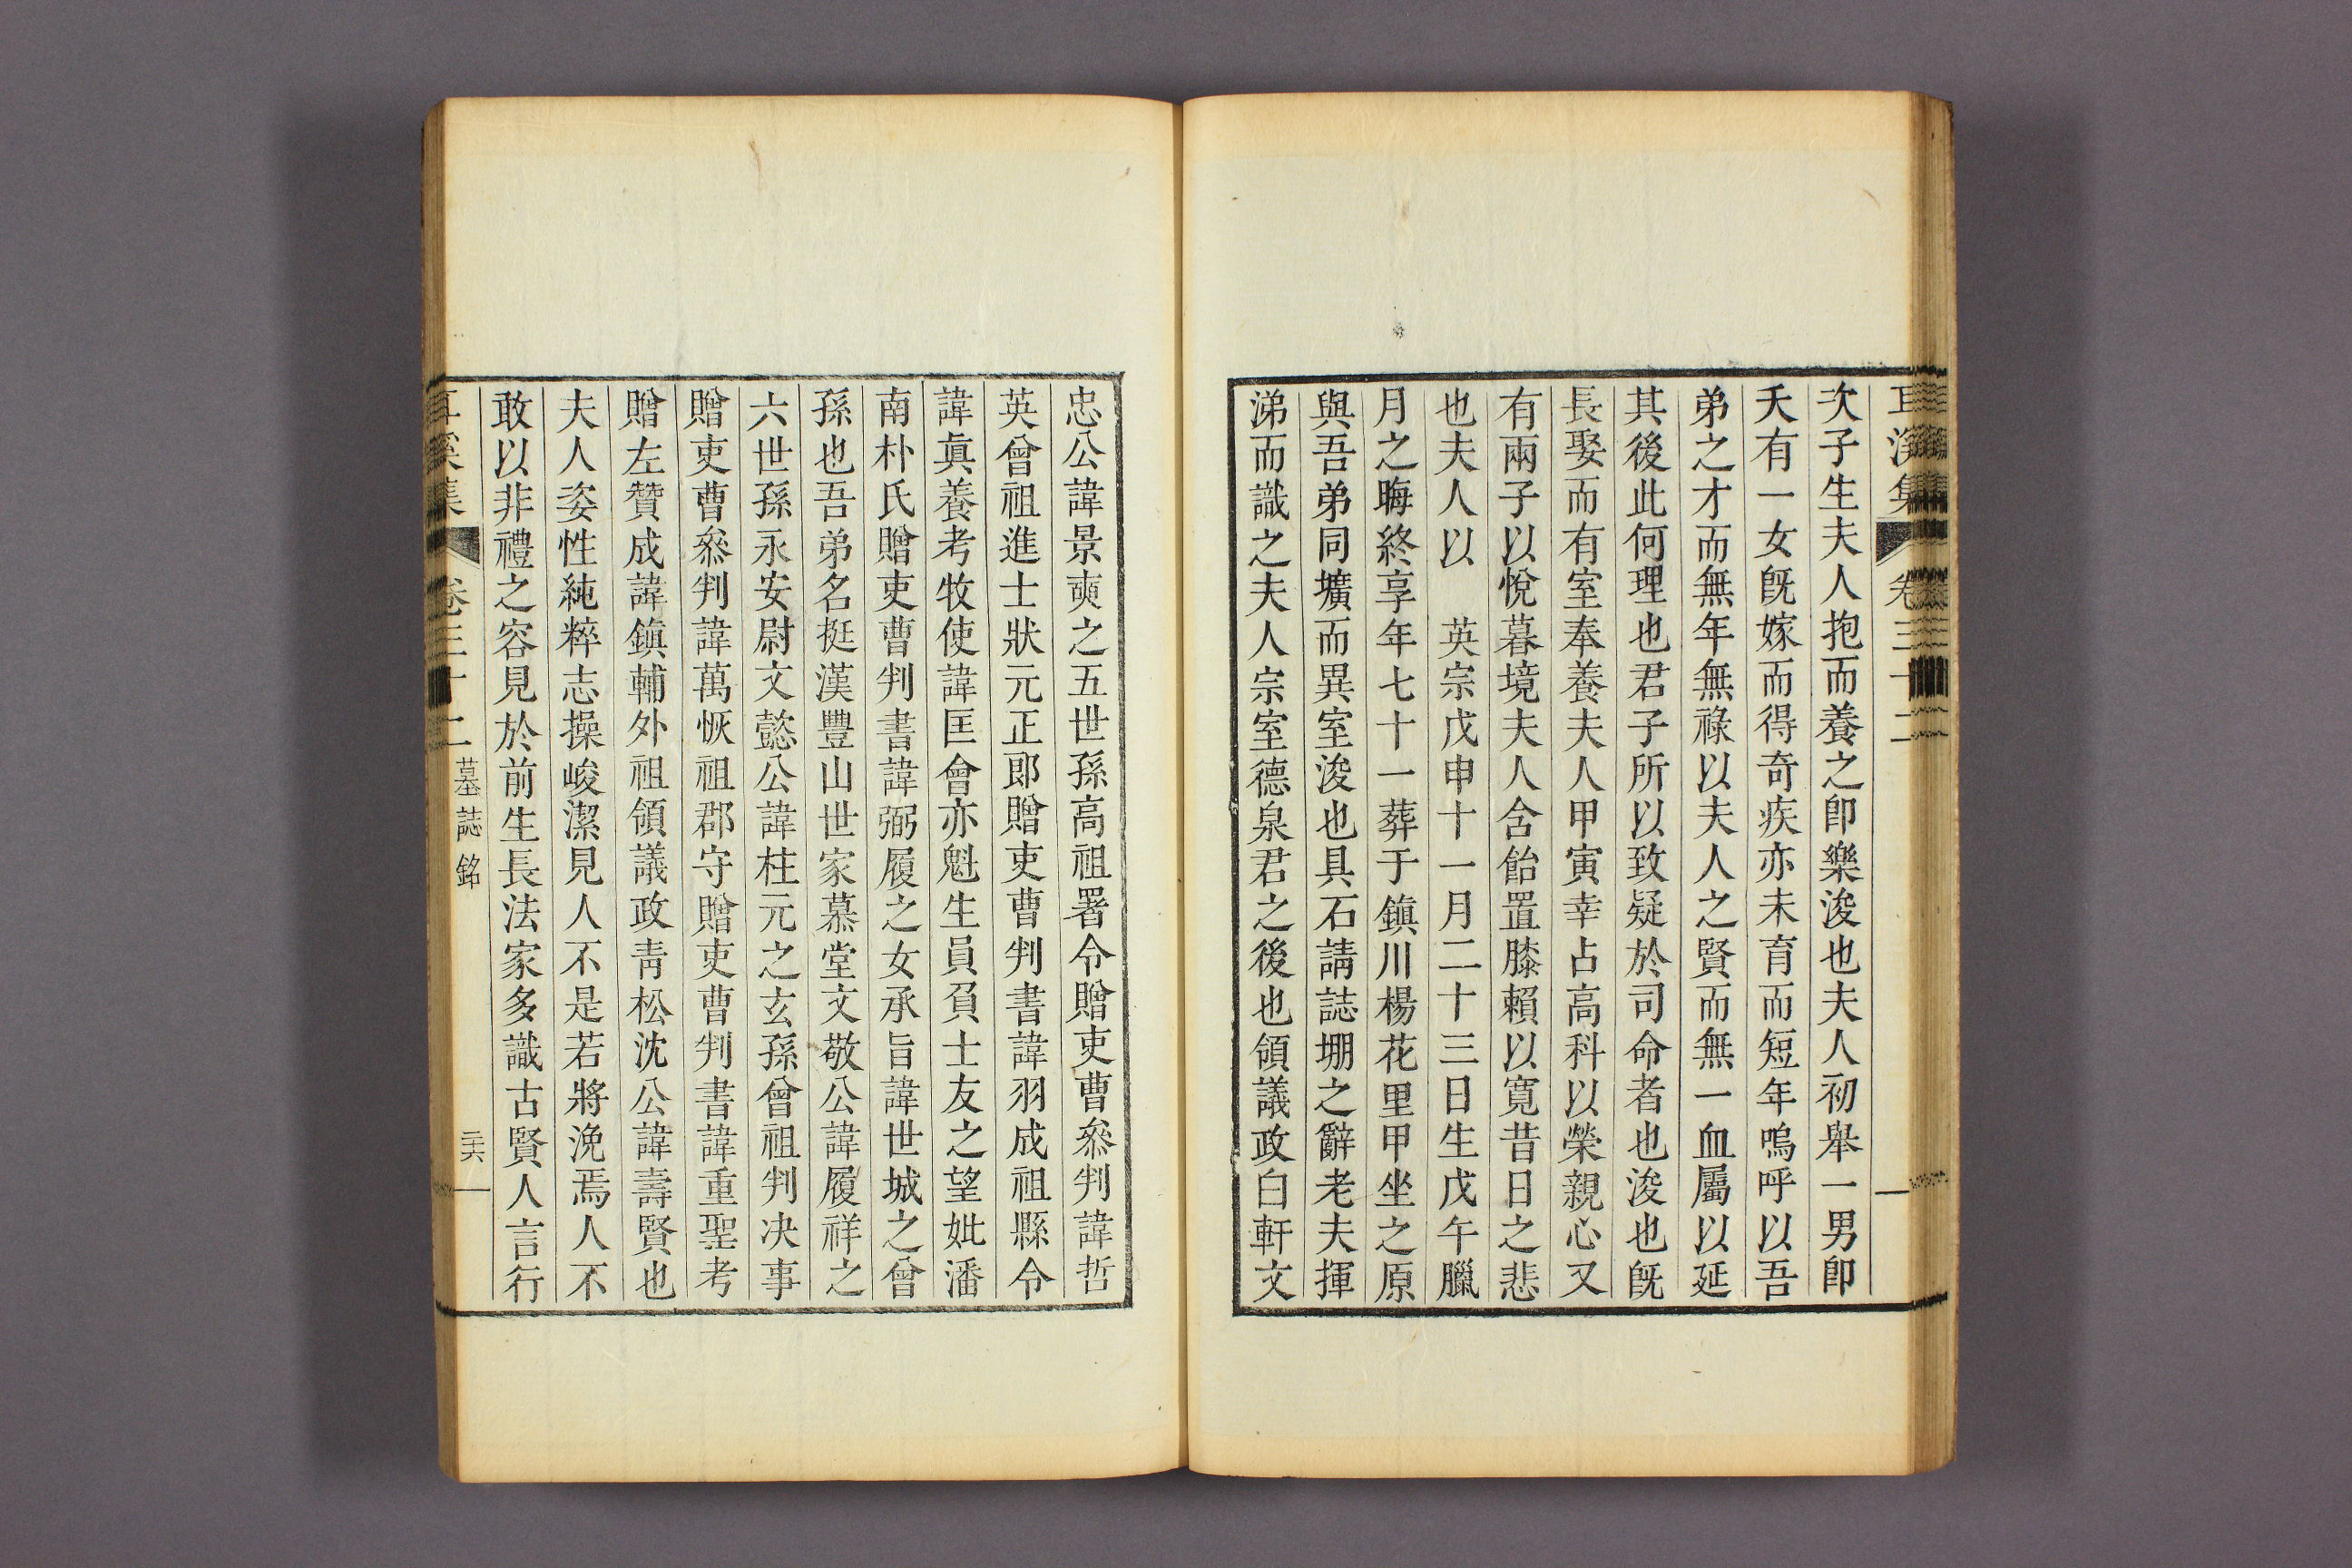 耳溪集 卷三十二
次子生夫人抱而養之卽樂浚也夫人初舉一男卽
夭有一女旣嫁而得奇疾亦未育而短年嗚呼以吾
弟之才而無年無祿以夫人之賢而無一血屬以延
其後此何理也君子所以致疑於司命者也浚也旣
長娶而有室奉養夫人甲寅幸占高科以榮親心又
有兩子以悅暮境夫人含飴置膝賴以寬昔日之悲
也夫人以 英宗戊申十一月二十三日生戊午臘
月之晦終享年七十一葬于鎭川楊花里甲坐之原
與吾弟同壙而異室浚也具石請誌堋之辭老夫揮
涕而識之夫人宗室德泉君之後也領議政白軒文
忠公諱景奭之五世孫高祖署令贈吏曹叅判諱哲
英曾祖進士狀元正郞贈吏曹判書諱羽成祖縣令
諱眞養考牧使諱匡會亦魁生員負士友之望妣潘
南朴氏贈吏曹判書諱弼履之女承旨諱世城之曾
孫也吾弟名挺漢豐山世家慕堂文敬公諱履祥之
六世孫永安尉文懿公諱柱元之玄孫曾祖判决事
贈吏曹叅判諱萬恢祖郡守贈吏曹判書諱重聖考
贈左贊成諱鎭輔外祖領議政靑松沈公諱壽賢也
夫人姿性純粹志操峻潔見人不是若將浼焉人不
敢以非禮之容見於前生長法家多識古賢人言行
耳溪集 卷三十二 墓誌銘 二六